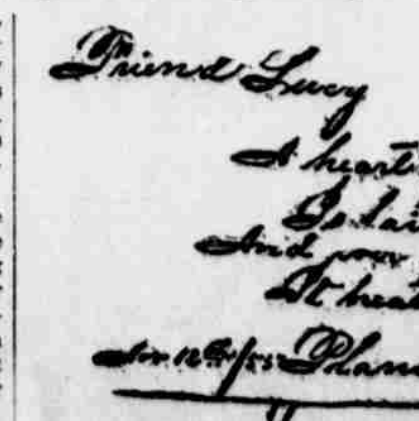 Friend Lucy
A heart
Is lai
And your
It hea
Nov 12th/55 Plan